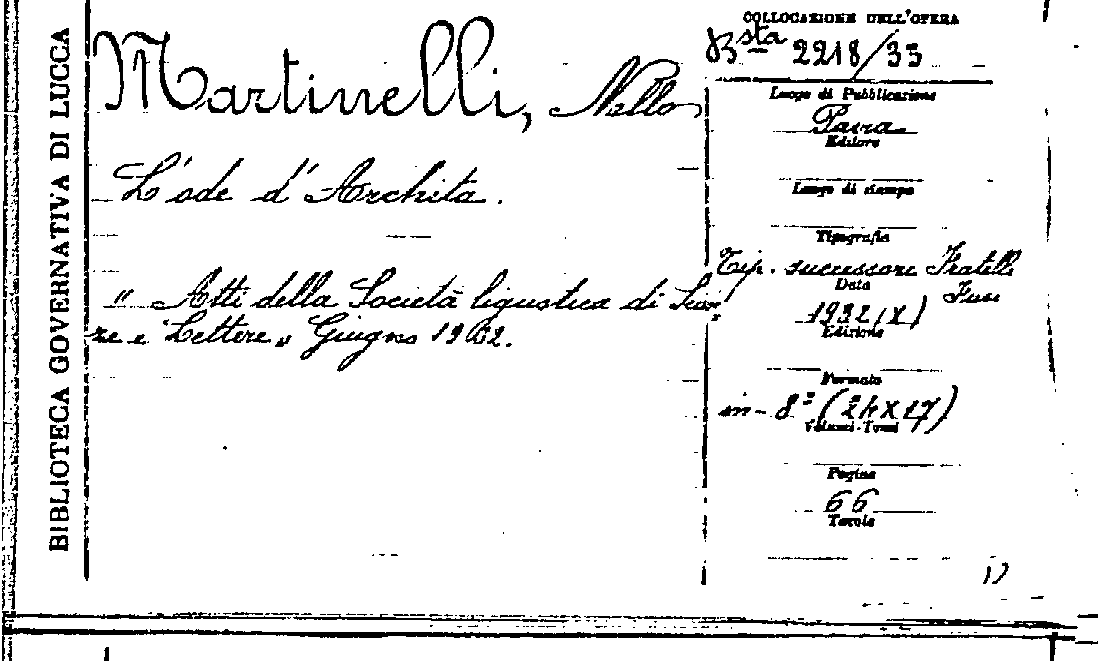 BIBLIOTECA GOVERNATIVA DI LUCCA
Martinelli, Nello
L'ode d'Archita.
" Atti della Società ligustica di Scien,
ze e Lettere " Giugno 1932.
COLLOCAZIONE DELL'OPERA
Bsta 2218/33
Luogo di Pubblicazione
Pavia
Editore
Luogo di stampa
Tipografia
Tip. successore Fratelli
Fusi
Data
1932 (X)
Edizione
Formato
in-8° (24x17)
Volumi-Tomi
Pagine
66
Tavole